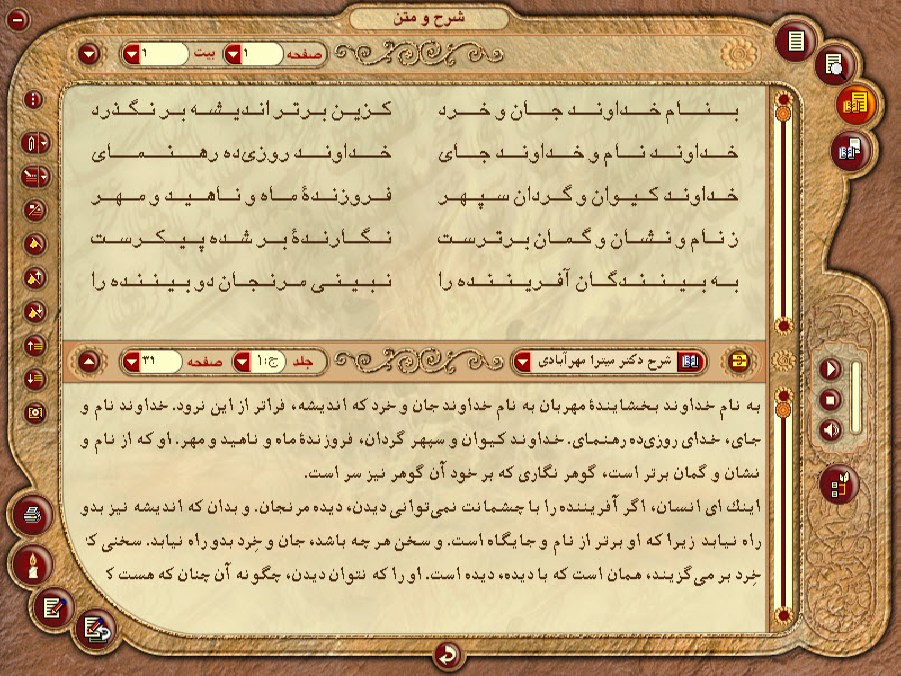 شرح و متن
صفحه ۱ بیت ۱
بنام خداوند جان و خرد کزین برتر اندیشه بر نگذرد
خداوند نام و خداوند جای خداوند روزی‌ده رهنمای
خداوند کیوان و گردان سپهر فروزندهٔ ماه و ناهید و مهر
ز نام و نشان و گمان برترست نگارندهٔ بر شده پیکرست
به بینندگان آفریننده را نبینی مرنجان دو بیننده را
شرح دکتر میترا مهرآبادی جلد ج:۱ صفحه ۳۹
به نام خداوند بخشایندهٔ مهربان به نام خداوند جان و خرد که اندیشه، فراتر از این نرود. خداوند نام و
جای، خدای روزی‌ده رهنمای. خداوند کیوان و سپهر گردان، فروزندهٔ ماه و ناهید و مهر. او که از نام و
نشان و گمان برتر است، گوهر نگاری که بر خود آن گوهر نیز سر است.
اینک ای انسان، اگر آفریننده را با چشمانت نمی‌توانی دیدن، دیده مرنجان. و بدان که اندیشه نیز بدو
راه نیابد زیرا که او برتر از نام و جایگاه است. و سخن هر چه باشد، جان و خِرد بدو راه نیابد. سخنی
خِرد بر می‌گزیند، همان است که با دیده، دیده است. او را که نتوان دیدن، چگونه آن چنان که هست